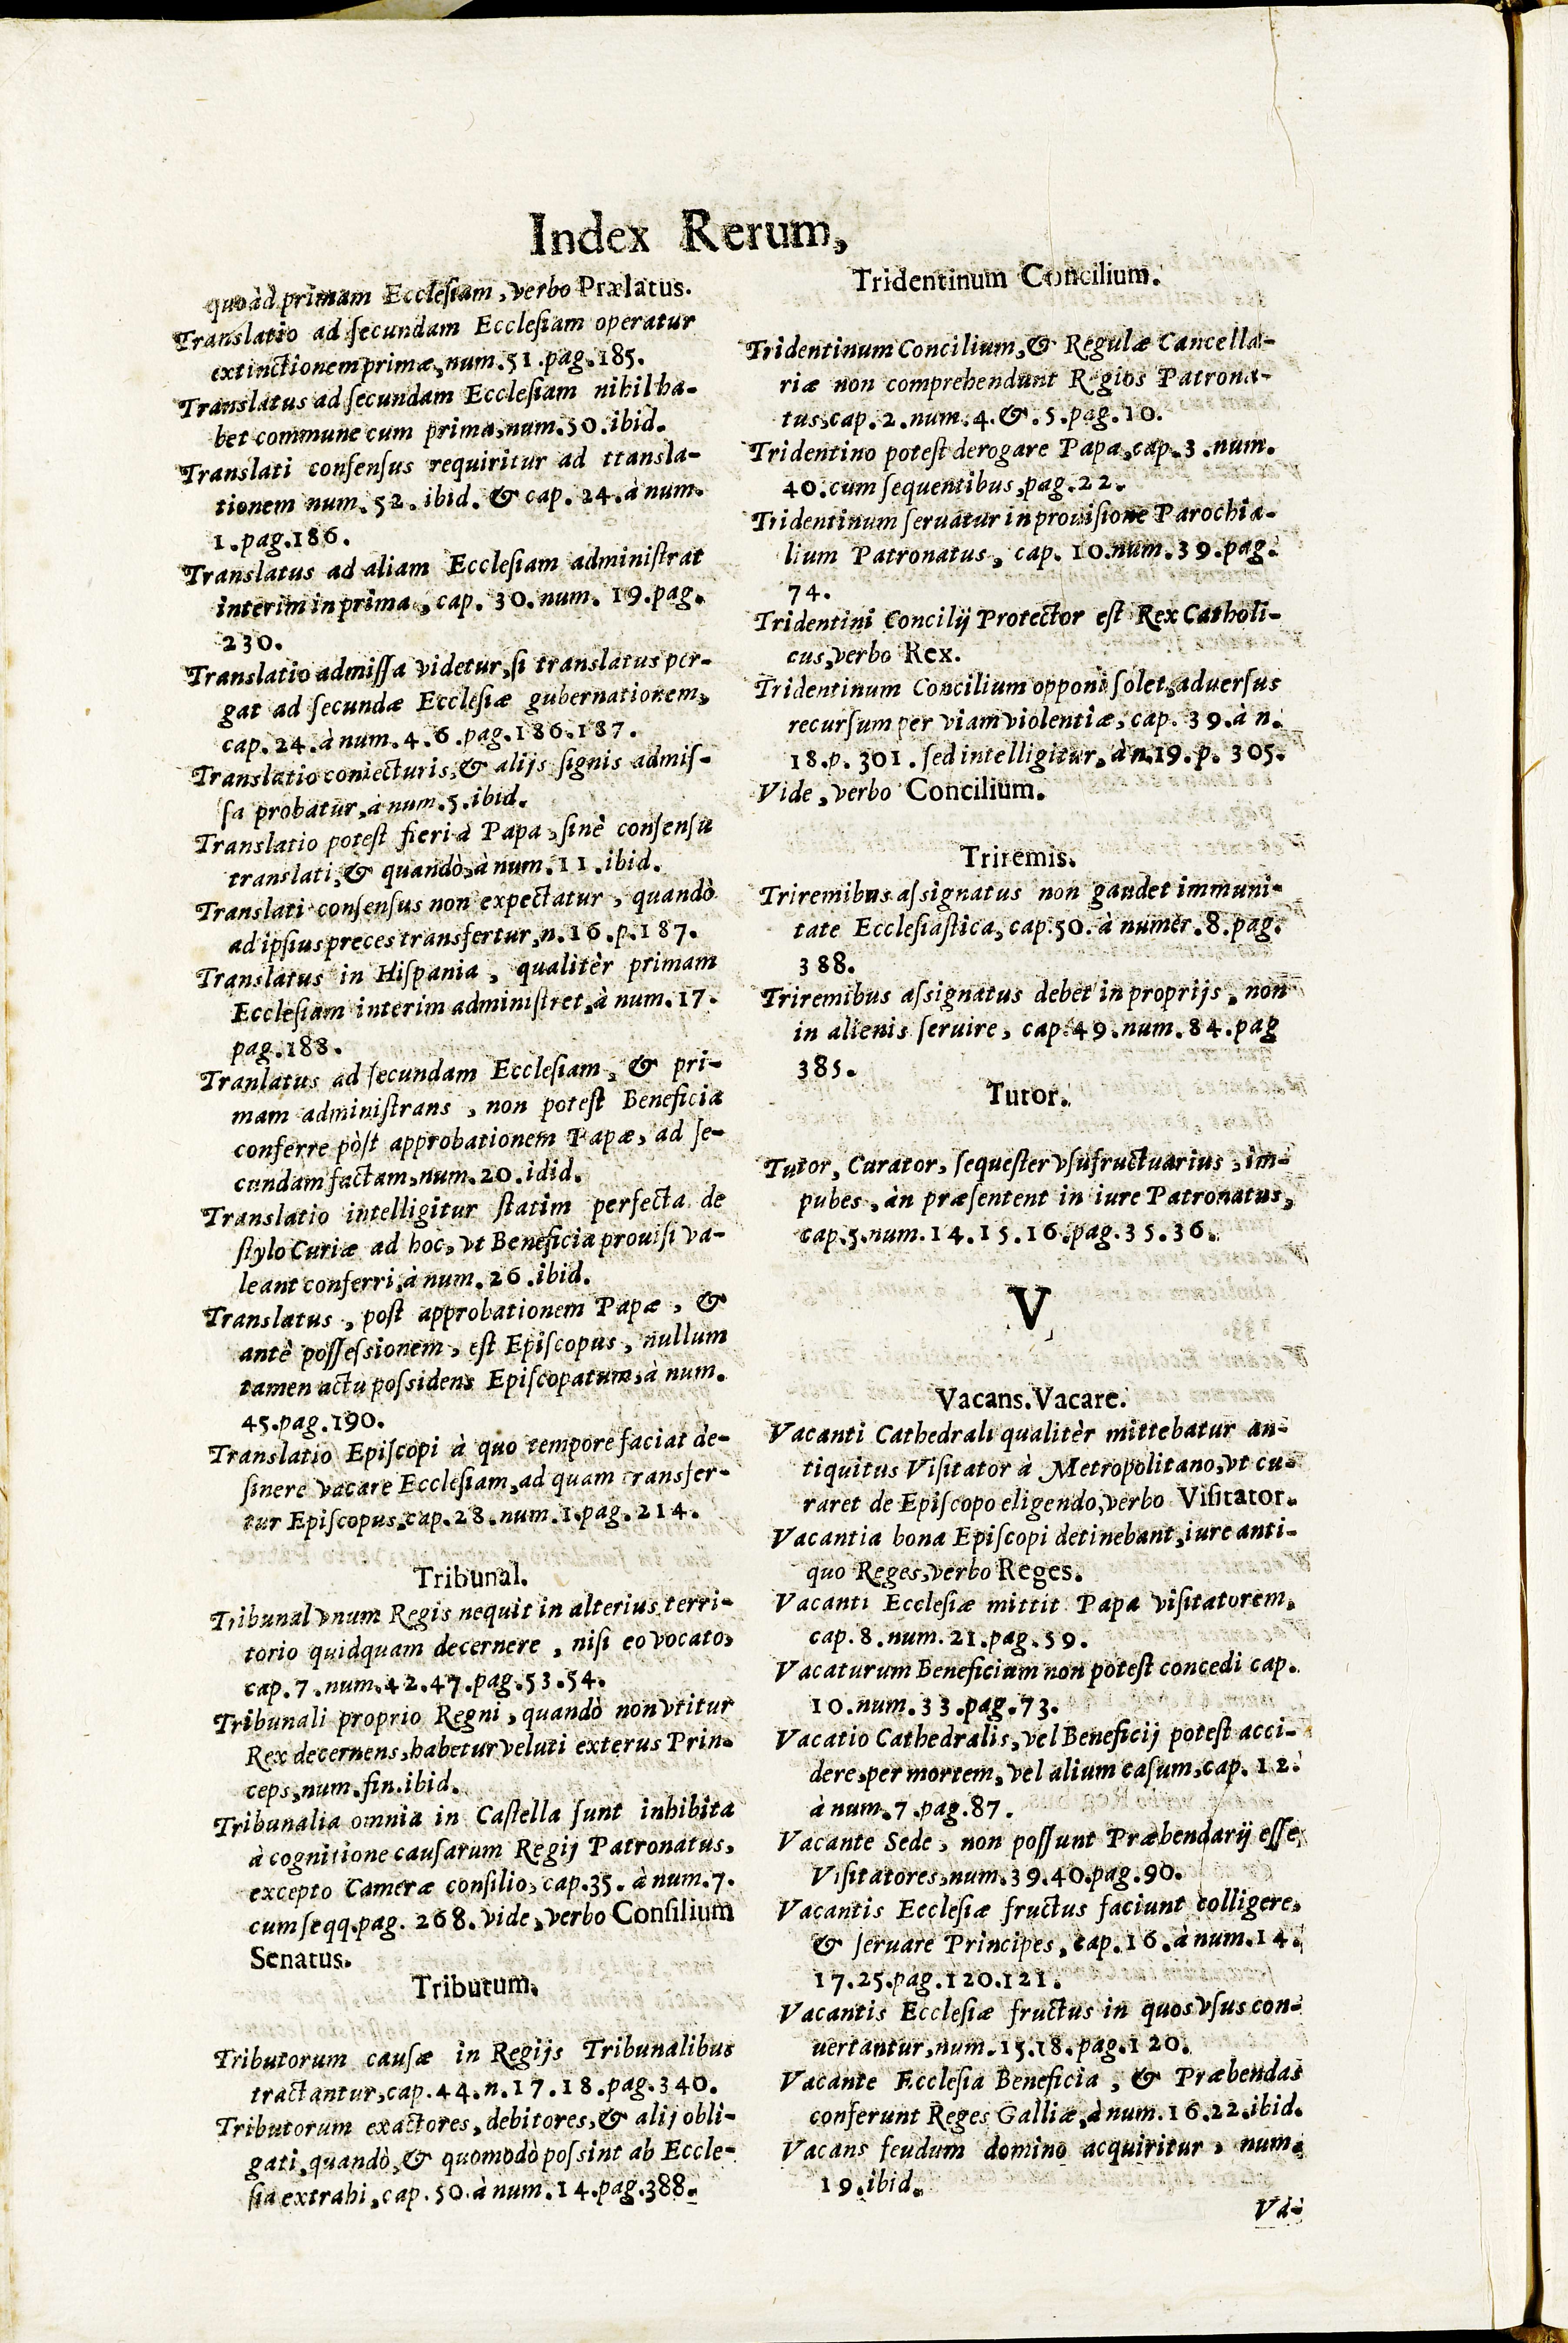 Index Rerum,
quoàd primam Eccleſiam, verbo Prælatus.
Translatio ad ſecundam Eccleſiam operatur
extinctionem primæ, num. 51. pag. 185.
Translatus ad ſecundam Eccleſiam nihil ha-
bet commune cum prima, num. 50. ibid.
Translati conſenſus requiritur ad ttansla-
tionem num. 52. ibid. & cap. 24. à num.
1. pag. 186.
Translatus ad aliam Eccleſiam adminiſtrat
interim in prima, cap. 30. num. 19. pag.
230.
Translatio admiſſa videtur, ſi translatus per-
gat ad ſecundæ Eccleſiæ gubernationem,
cap. 24. à num. 4. 6. pag. 186. 187.
Translatio coniecturis, & alijs ſignis admiſ-
ſa probatur, à num. 5. ibid.
Translatio poteſt fieri à Papa, ſinè conſenſu
translati, & quandò, à num. 11. ibid.
Translati conſenſus non expectatur, quandò
ad ipſius preces transfertur, n. 16. p. 187.
Translatus in Hiſpania, qualitèr primam
Eccleſiam interim adminiſtret, à num. 17.
pag. 188.
Tranlatus ad ſecundam Eccleſiam, & pri-
mam adminiſtrans, non poteſt Beneficia
conferre pòſt approbationem Papæ, ad ſe-
cundam factam, num. 20. idid.
Translatio intelligitur ſtatim perfecta de
ſtylo Curiæ ad hoc, vt Beneficia prouiſi va-
leant conferri, à num. 26. ibid.
Translatus, poſt approbationem Papæ, &
antè poſſeſsionem, eſt Epiſcopus, nullum
tamen actu poſsidens Epiſcopatum, à num.
45. pag. 190.
Translatio Epiſcopi à quo tempore faciat de-
ſinere vacare Eccleſiam, ad quam transfer-
tur Epiſcopus, cap. 28. num. 1. pag. 214.
Tribunal.
Tribunal vnum Regis nequit in alterius terri-
torio quidquam decernere, niſi eo vocato,
cap. 7. num. 42. 47. pag. 53. 54.
Tribunali proprio Regni, quandò non vtitur
Rex decernens, habetur veluti exterus Prin-
ceps, num. fin. ibid.
Tribunalia omnia in Caſtella ſunt inhibita
à cognitione cauſarum Regij Patronatus,
excepto Cameræ conſilio, cap. 35. à num. 7.
cum ſeqq. pag. 268. vide, verbo Conſilium
Senatus.
Tributum.
Tributorum cauſæ in Regijs Tribunalibus
tractantur, cap. 44. n. 17. 18. pag. 340.
Tributorum exactores, debitores, & alij obli-
gati, quandò, & quomodò poſsint ab Eccle-
ſia extrahi, cap. 50. à num. 14. pag. 388.
Tridentinum Concilium.
Tridentinum Concilium, & Regulæ Cancella-
riæ non comprehendunt Regios Patrona-
tus, cap. 2. num. 4. &. 5. pag. 10.
Tridentino poteſt derogare Papa, cap. 3. num.
40. cum ſequentibus, pag. 22.
Tridentinum ſeruatur in prouiſione Parochia-
lium Patronatus, cap. 10. num. 39. pag.
74.
Tridentini Concilij Protector eſt Rex Catholi-
cus, verbo Rex.
Tridentinum Concilium opponi ſolet, aduerſus
recurſum per viam violentiæ, cap. 39. à n.
18. p. 301. ſed intelligitur, à n. 19. p. 305.
Vide, verbo Concilium.
Triremis.
Triremibus aſsignatus non gaudet immuni-
tate Eccleſiaſtica, cap. 50. à numer. 8. pag.
388.
Triremibus aſsignatus debet in proprijs, non
in alienis ſeruire, cap. 49. num. 84. pag
385.
Tutor.
Tutor, Curator, ſequeſter vſufructuarius, im-
pubes, àn præſentent in iure Patronatus,
cap. 5. num. 14. 15. 16. pag. 35. 36.
V
Vacans. Vacare.
Vacanti Cathedrali qualitèr mittebatur an-
tiquitus Viſitator à Metropolitano, vt cu-
raret de Epiſcopo eligendo, verbo Viſitator.
Vacantia bona Epiſcopi detinebant, iure anti-
quo Reges, verbo Reges.
Vacanti Eccleſiæ mittit Papa viſitatorem,
cap. 8. num. 21. pag. 59.
Vacaturum Beneficium non poteſt concedi cap.
10. num. 33. pag. 73.
Vacatio Cathedralis, vel Beneficij poteſt acci-
dere, per mortem, vel alium caſum, cap. 12.
à num. 7. pag. 87.
Vacante Sede, non poſſunt Præbendarij eſſe
Viſitatores, num. 39. 40. pag. 90.
Vacantis Eccleſiæ fructus faciunt colligere,
& ſeruare Principes, cap. 16. à num. 14.
17. 25. pag. 120. 121.
Vacantis Eccleſiæ fructus in quos vſus con-
uertantur, num. 15. 18. pag. 120.
Vacante Eccleſia Beneficia, & Præbendas
conferunt Reges Galliæ, à num. 16. 22. ibid.
Vacans feudum domino acquiritur, num.
19. ibid.
Va-